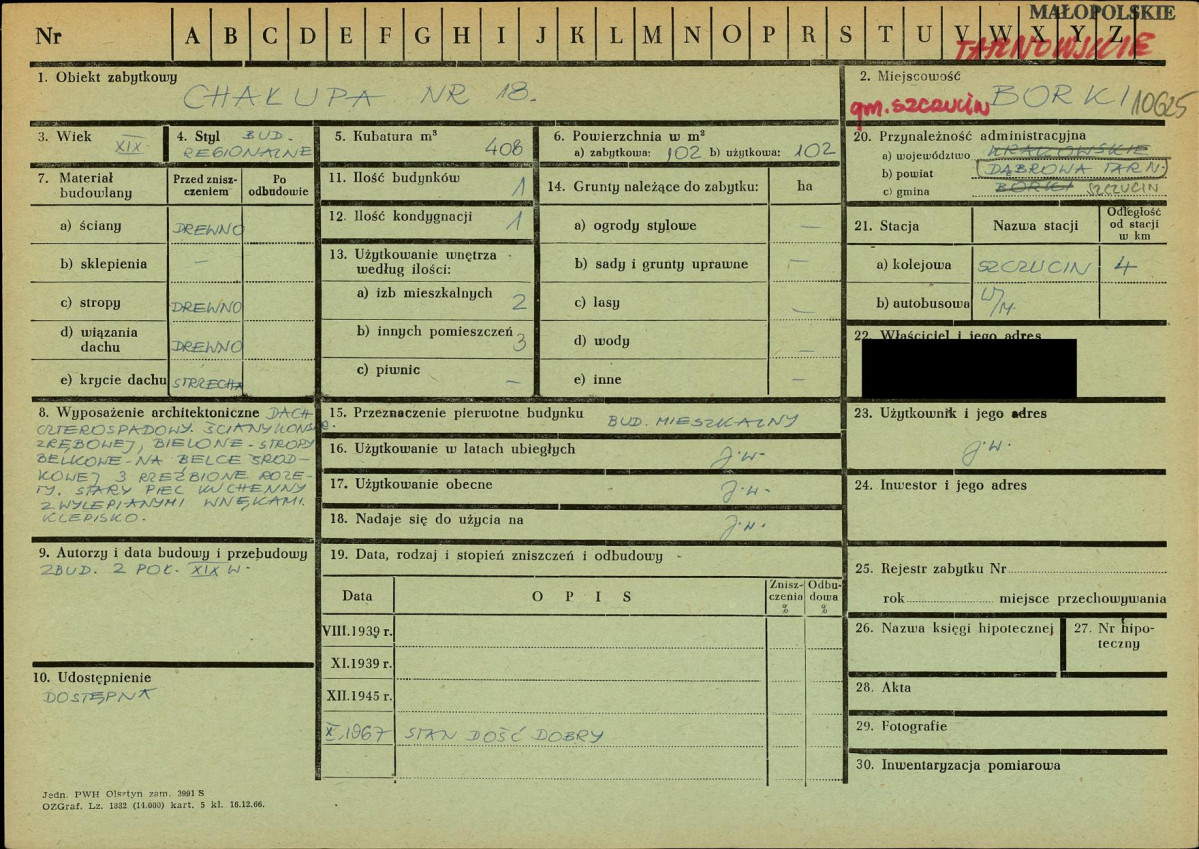 MAŁOPOLSKIE
Nr A B C D E F G H I J K L M N O P R S T U V W X Y Z
TARNOWSKIE
1. Obiekt zabytkowy
CHAŁUPA NR 18.
2. Miejscowość
gm. SZCZUCIN BORKI 10625
3. Wiek
XIX
4. Styl BUD.
REGIONALNE
5. Kubatura m³
408
6. Powierzchnia w m²
a) zabytkowa: 102 b) użytkowa: 102
20. Przynależność administracyjna
a) województwo KRAKOWSKIE
b) powiat DĄBROWA TARN.
c) gmina BORKI SZCZUCIN
7. Materiał budowlany
Przed zniszczeniem
Po odbudowie
a) ściany DREWNO
b) sklepienia –
c) stropy DREWNO
d) wiązania dachu DREWNO
e) krycie dachu STRZECHA
11. Ilość budynków 1
12. Ilość kondygnacji 1
13. Użytkowanie wnętrza
według ilości:
a) izb mieszkalnych 2
b) innych pomieszczeń 3
c) piwnic –
14. Grunty należące do zabytku: ha
a) ogrody stylowe –
b) sady i grunty uprawne –
c) lasy –
d) wody –
e) inne –
21. Stacja Nazwa stacji Odległość od stacji w km
a) kolejowa SZCZUCIN 4
b) autobusowa W/M
22. Właściciel i jego adres
8. Wyposażenie architektoniczne DACH
CZTEROSPADOWY. ŚCIANY KONSTR.
ZRĘBOWEJ, BIELONE - STROPY
BELKOWE - NA BELCE ŚROD-
KOWEJ 3 RZEŹBIONE ROZE-
TY. STARY PIEC KUCHENNY
Z WYLEPIANYMI WNĘKAMI.
KLEPISKO.
15. Przeznaczenie pierwotne budynku BUD. MIESZKALNY
16. Użytkowanie w latach ubiegłych j.w.
17. Użytkowanie obecne j.w.
18. Nadaje się do użycia na j.w.
23. Użytkownik i jego adres
j.w.
24. Inwestor i jego adres
9. Autorzy i data budowy i przebudowy
ZBUD. 2 POŁ. XIX W.
10. Udostępnienie
DOSTĘPNA
19. Data, rodzaj i stopień zniszczeń i odbudowy
Data OPIS Zniszczenia % Odbudowa %
VIII.1939 r.
XI.1939 r.
XII.1945 r.
X.1967 STAN DOŚĆ DOBRY
25. Rejestr zabytku Nr
rok miejsce przechowywania
26. Nazwa księgi hipotecznej
27. Nr hipoteczny
28. Akta
29. Fotografie
30. Inwentaryzacja pomiarowa
Jedn. PWH Olsztyn zam. 3991 S
OZGraf. Lz. 1332 (14.000) kart. 5 kl. 16.12.66.